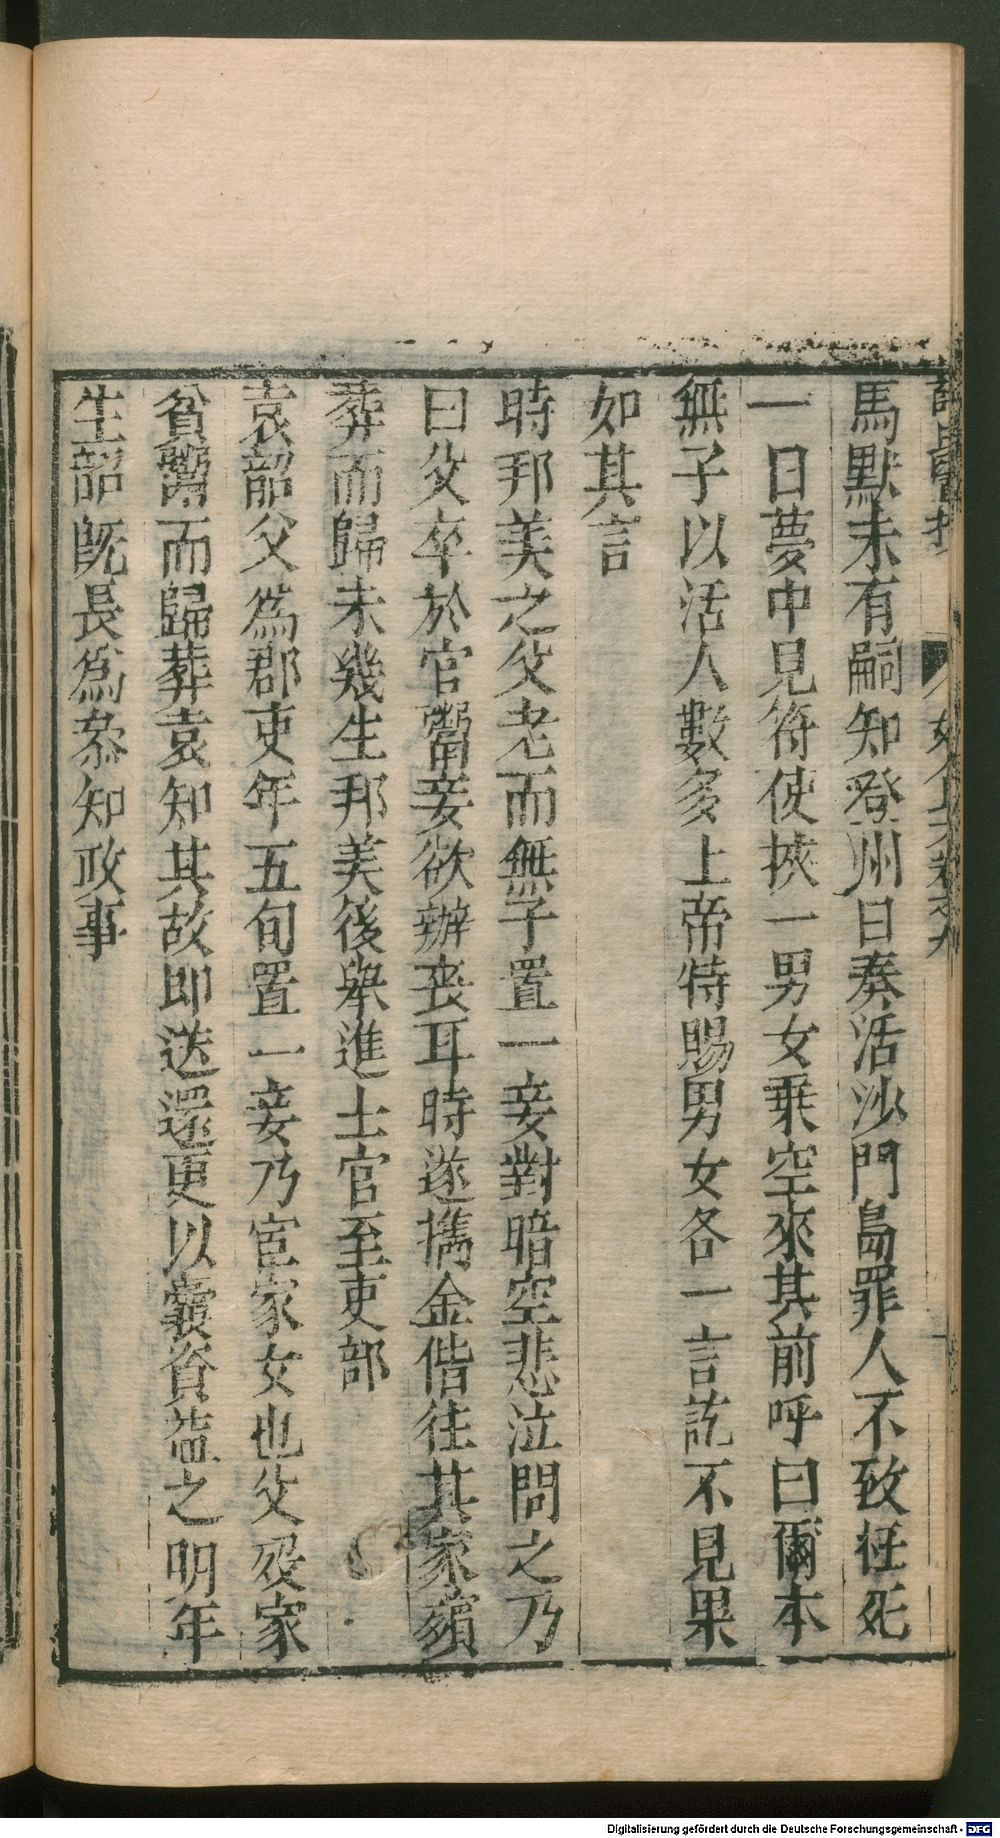 馬默未有嗣知登州日奏活沙門島罪人不致枉死
一日夢中見符使挾一男女乗空來其前呼曰爾本
無子以活人數多上帝特賜男女各一言訖不見果
如其言
時邦美之父老而無子置一妾對暗空悲泣問之乃
曰父卒於官鬻妾欲辦丧耳時遂攜金偕往其家殯
葬而歸未幾生邦美後舉進士官至吏部
袁韶父為郡吏年五旬置一妾乃宦家女也父歿家
貧鬻而歸葬袁知其故即送還更以囊資益之明年
生韶旣長為叅知政事
Digitalisierung gefördert durch die Deutsche Forschungsgemeinschaft - DFG